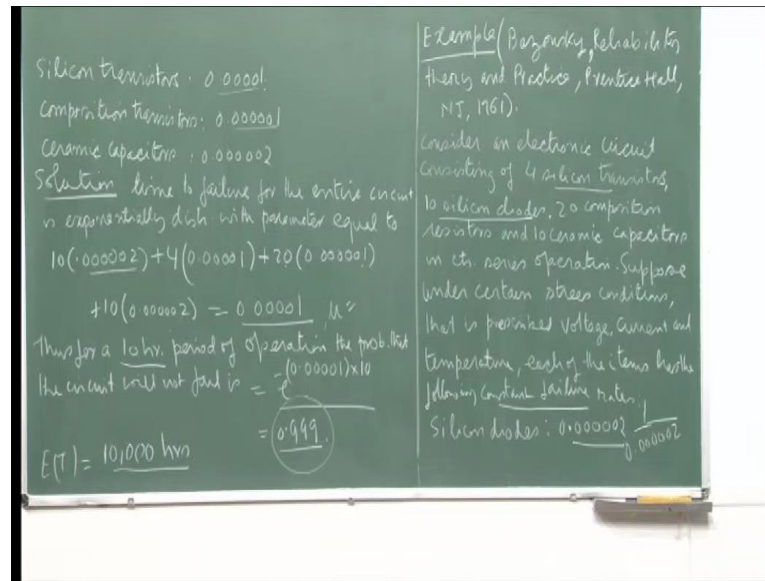 Silicon transistors: 0.00001
composition transistors: 0.000001
ceramic capacitors: 0.000002
Solution time to failure for the entire circuit
is exponentially dist. with parameter equal to
10(.000002)+4(0.00001)+20(0.000001)
+10(0.00002) = 0.00001
Thus for a 10 hr. period of operation the prob. that
the circuit will not fail is = e^-(0.00001)x10
= 0.999.
E(T) = 10,000 hrs
Example (Bazousky, Reliability
theory and Practice, Prentice Hall,
NJ, 1961).
Consider an electronic circuit
consisting of 4 silicon transistors,
10 silicon diodes, 20 composition
resistors and 10 ceramic capacitors
in cts. series operation. Suppose
under certain stress conditions,
that is prescribed voltage, current and
temperature, each of the items has the
following constant failure rates.
Silicon diodes: 0.000002 1/0.000002